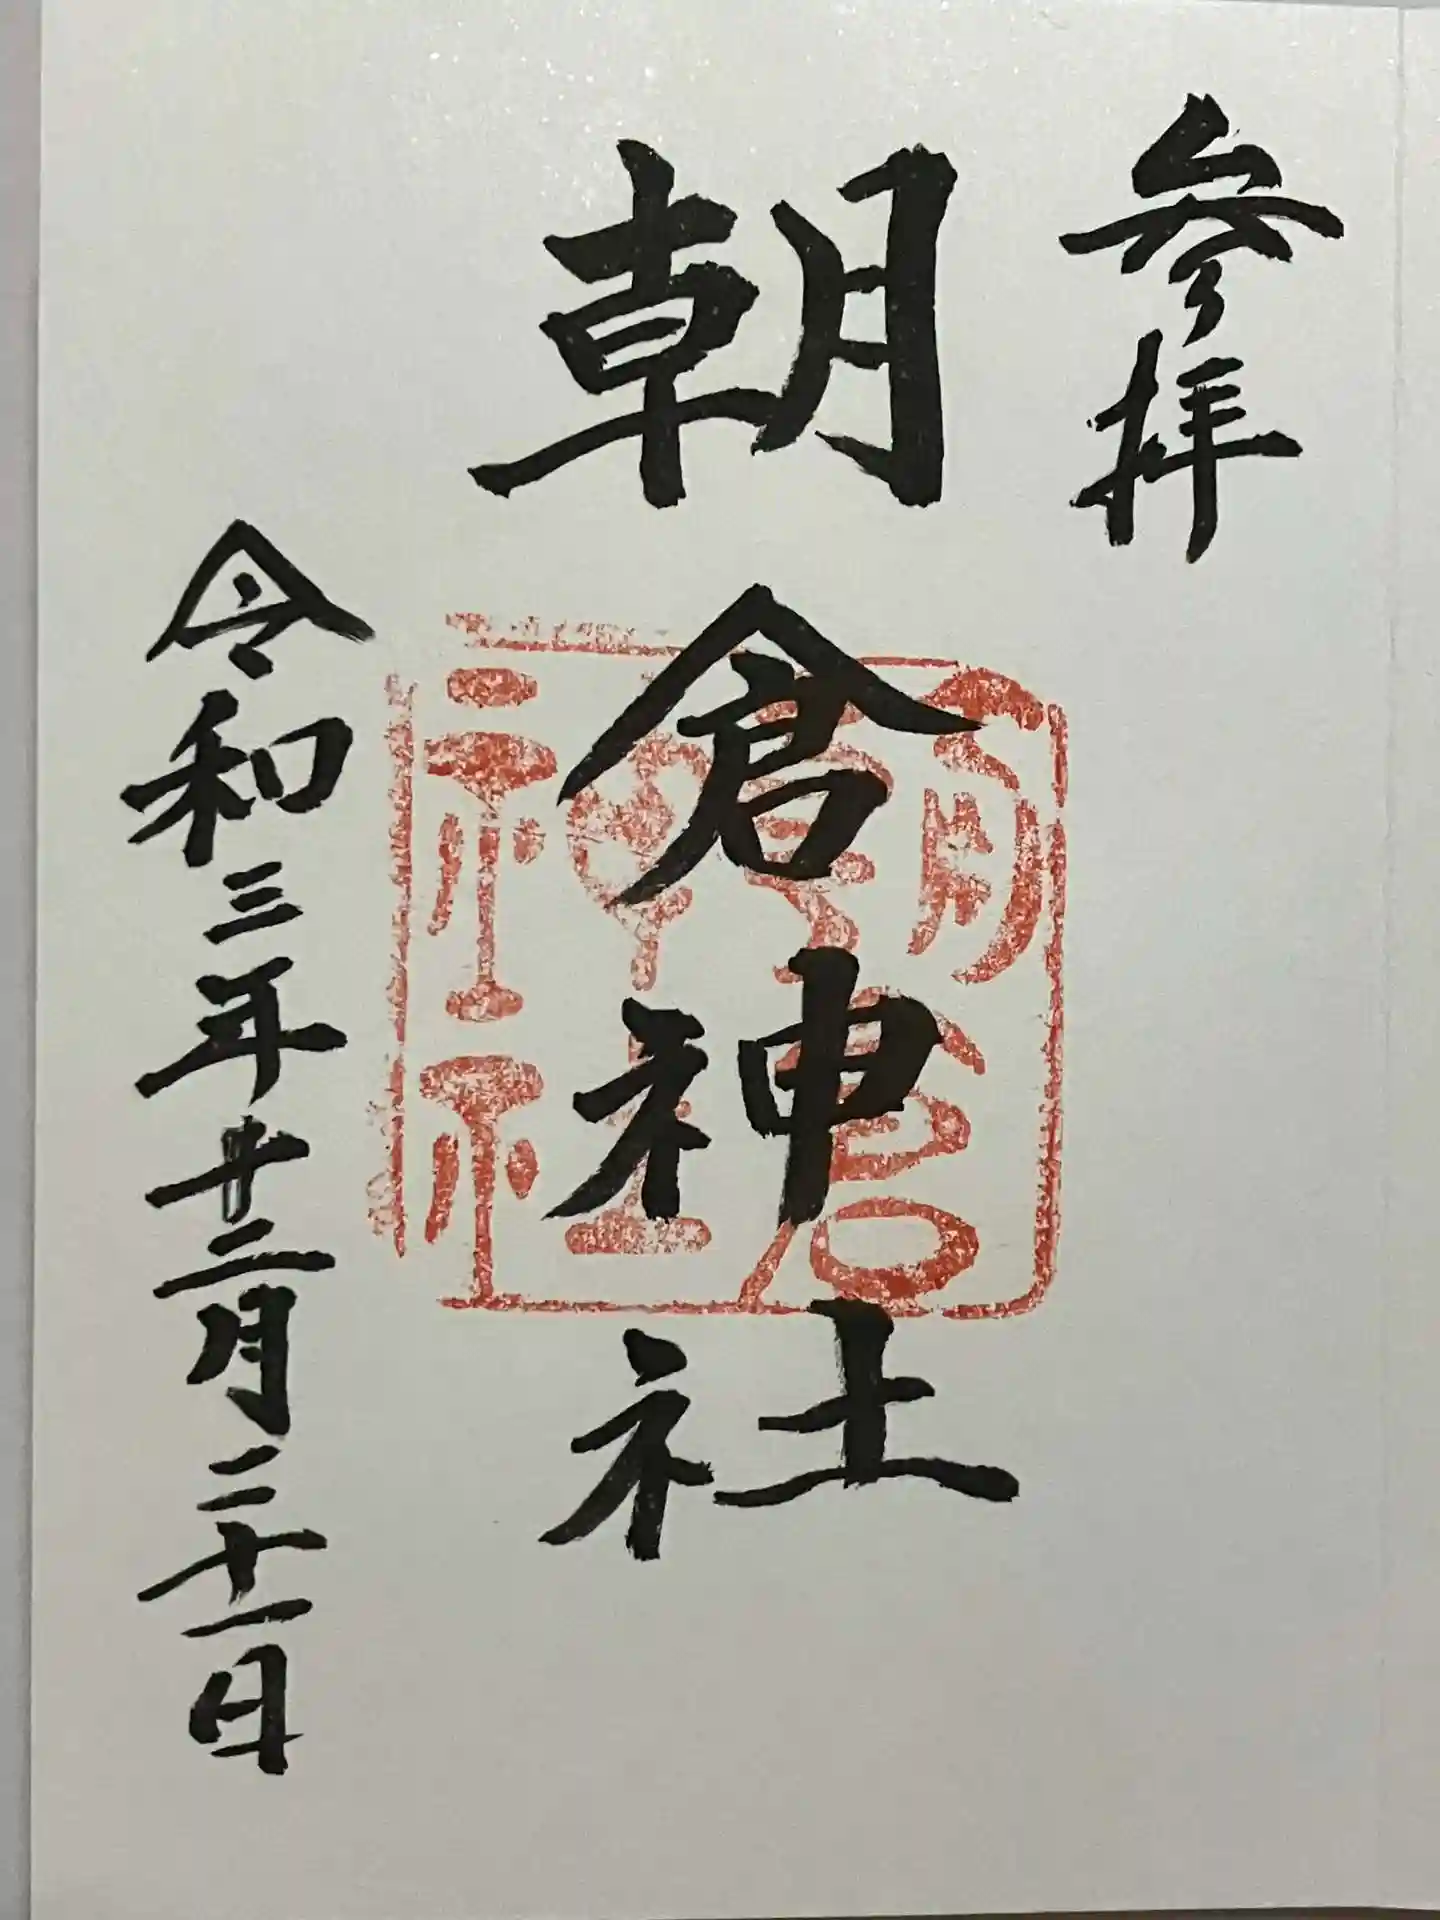 参拝
朝倉神社
令和三年十二月二十一日
朝倉神社